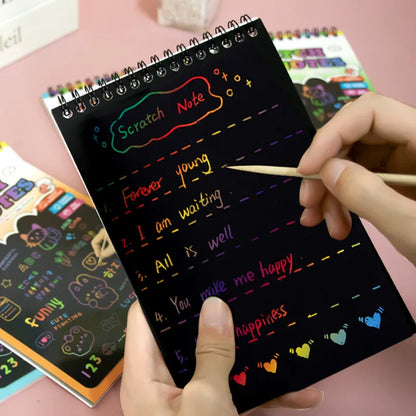 Scratch Note
1. Forever young
2. I am waiting
3. All is well
4. You make me happy.
5. happiness
funny
123